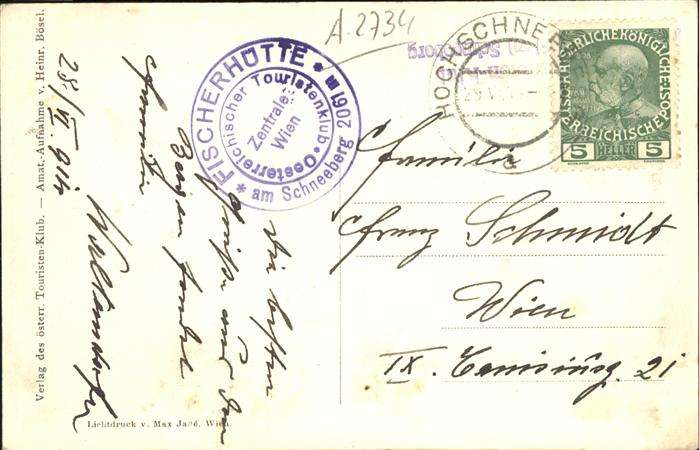 A.2734
FISCHERHÜTTE
am Schneeberg 2071 m
Oesterreichischer Touristenklub
Zentrale:
Wien
HOCHSCHNEE
Schneeberg
KAISERLICHE KÖNIGLICHE
OESTERREICHISCHE POST
5 HELLER 5
Familie
Franz Schmidt
Wien
IX. Canisiusg. 21
Die besten
Grüße aus den
Bergen sendet
28./VI 914
Verlag des österr. Touristen-Klub. — Amat.-Aufnahme v. Heinr. Bösel.
Lichtdruck v. Max Jaffé, Wien.